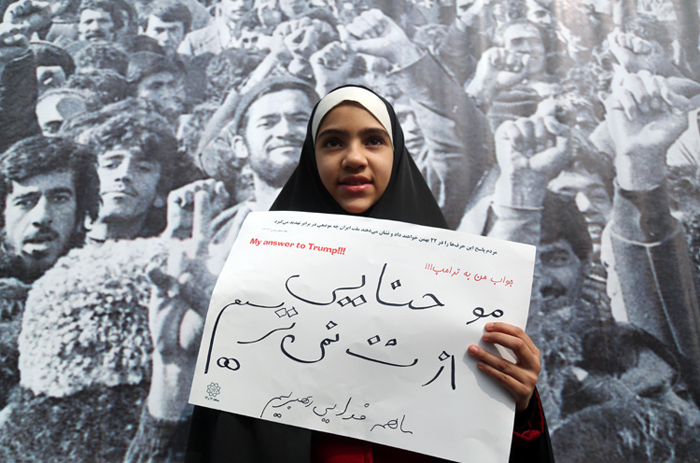 مردم پاسخ این حرف‌ها را در ۲۲ بهمن خواهند داد و نشان می‌دهند ملت ایران چه موضعی در برابر تهدید می‌گیرد
My answer to Trump!!!
جواب من به ترامپ!!!
مو حنایی
ازت نمی ترسیم
ما همه فدایی رهبریم